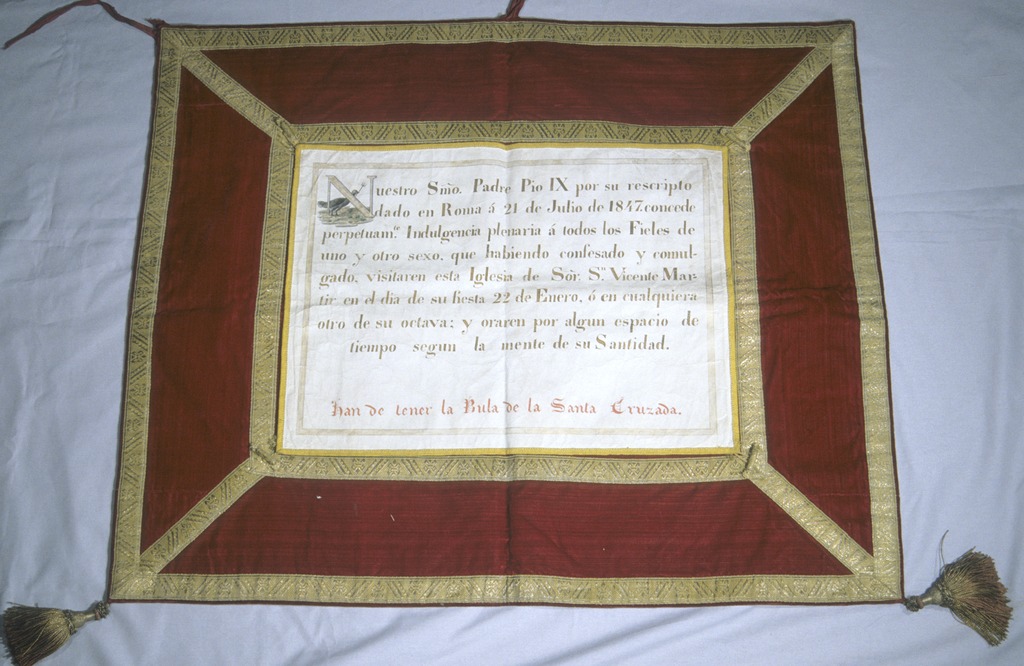 Nuestro Smo. Padre Pio IX por su rescripto
dado en Roma á 21 de Julio de 1847. concede
perpetuam.te Indulgencia plenaria á todos los Fieles de
uno y otro sexo, que habiendo confesado y comul-
gado, visitaren esta Iglesia de Sòr. Sn. Vicente Mar-
tir en el dia de su fiesta 22 de Enero, ó en cualquiera
otro de su octava; y oraren por algun espacio de
tiempo segun la mente de su Santidad.
han de tener la Bula de la Santa Cruzada.